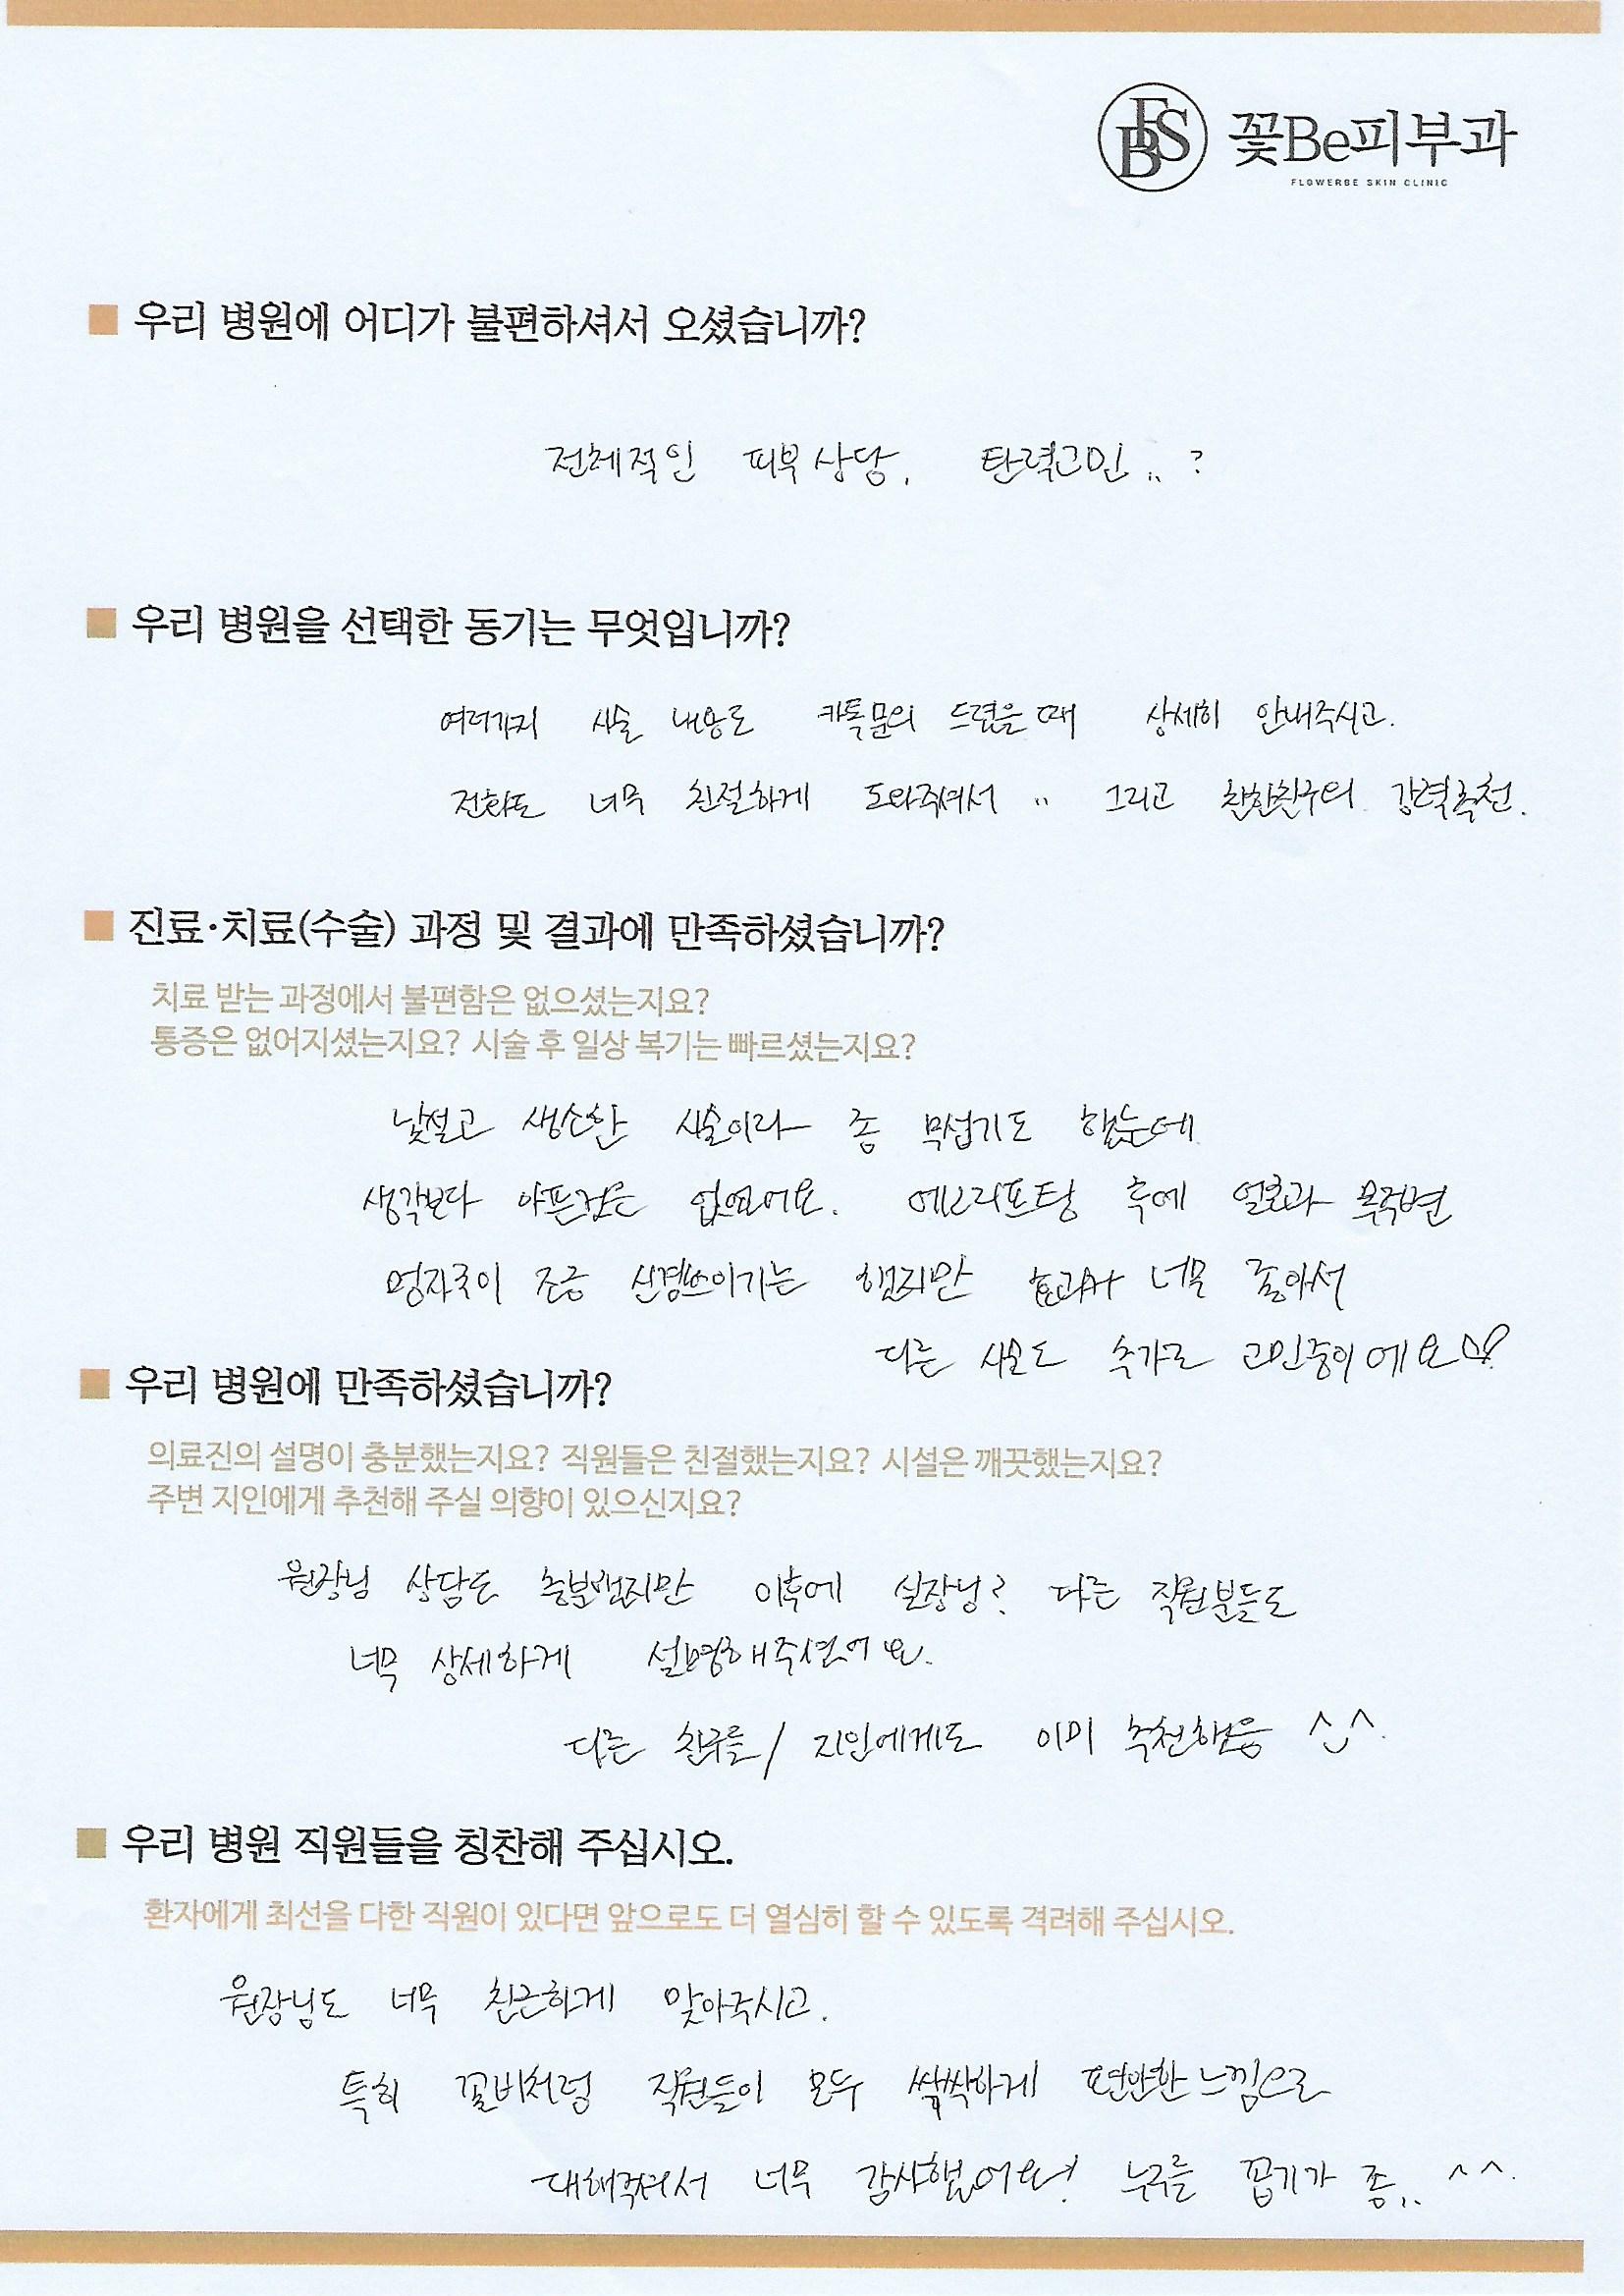 FBS 꽃Be피부과
FLOWERBE SKIN CLINIC
우리 병원에 어디가 불편하셔서 오셨습니까?
전체적인 피부상담, 탄력고민..?
우리 병원을 선택한 동기는 무엇입니까?
여러가지 시술 내용도 카톡문의 드렸을때 상세히 안내주시고.
전화도 너무 친절하게 도와주셔서 .. 그리고 찐한친구의 강력추천.
진료·치료(수술) 과정 및 결과에 만족하셨습니까?
치료 받는 과정에서 불편함은 없으셨는지요?
통증은 없어지셨는지요? 시술 후 일상 복기는 빠르셨는지요?
낯설고 생소한 시술이라 좀 무섭기도 했는데
생각보다 아픈건 없었어요. 리프팅 후에 얼굴과 목주변
멍자국이 조금 신경쓰이기는 했지만 효과가 너무 좋아서
다른 시술도 추가로 고민중이에요
우리 병원에 만족하셨습니까?
의료진의 설명이 충분했는지요? 직원들은 친절했는지요? 시설은 깨끗했는지요?
주변 지인에게 추천해 주실 의향이 있으신지요?
원장님 상담도 충분했지만 이후에 실장님? 다른 직원분들도
너무 상세하게 설명해주셨어요.
다른 친구들/ 지인에게도 이미 추천했음 ^^.
우리 병원 직원들을 칭찬해 주십시오.
환자에게 최선을 다한 직원이 있다면 앞으로도 더 열심히 할 수 있도록 격려해 주십시오.
원장님도 너무 친근하게 맞아주시고.
특히 꽃비처럼 직원들이 모두 싹싹하게 편안한 느낌으로
대해주셔서 너무 감사했어요! 누구를 꼽기가 좀.. ^^.